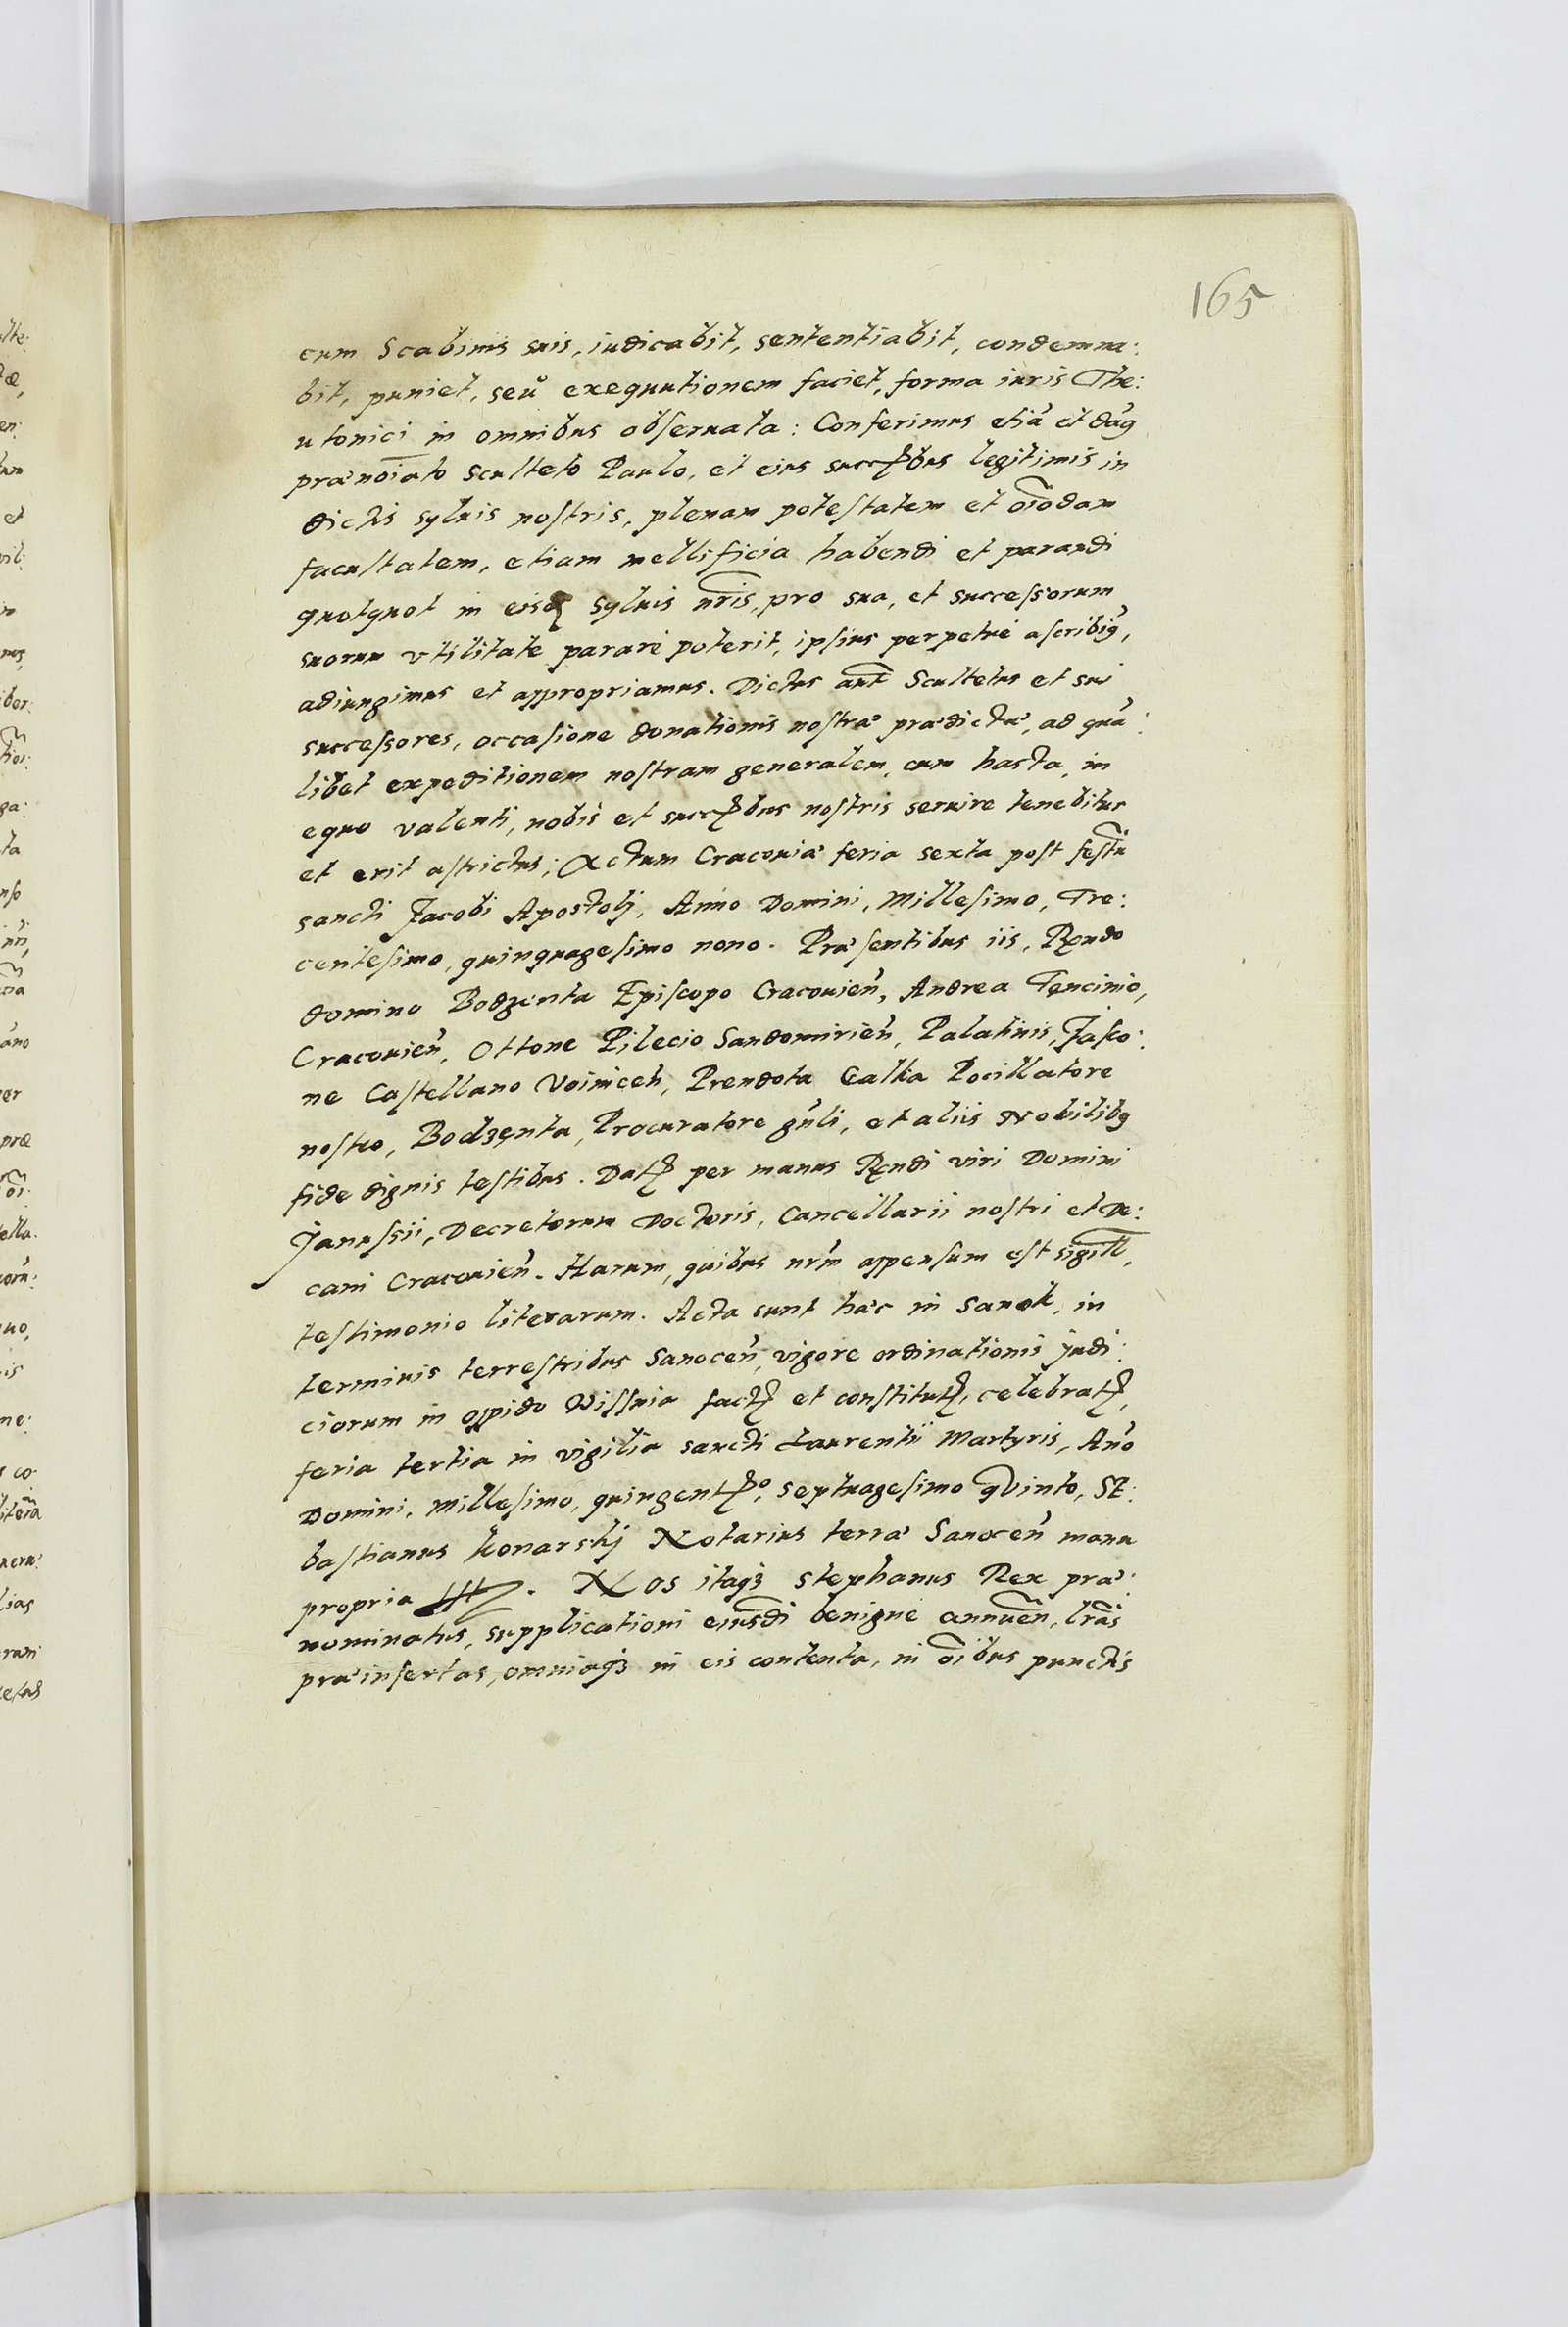 165
cum Scabinis suis, iudicabit, sententiabit, condemna:
bit, puniet, seu exequutionem faciet, forma iuris The:
utonici in omnibus obseruata: Conferimus etiã et dam9
præ'noĩato Sculteto Paulo, et eius succꝭbus legitimis in
dictis syluis nostris, plenam potestatem et oĩodam
facultatem, etiam mellificia habendi et parandi
quotquot in eisd syluis nr̃is, pro sua, et successorum
suorum vtilitate parare poterit, ipsius perpetuè ascribim9,
adiungimus et appropriamus. Dictus aut̃ Scultetus et sui
successores, occasione donationis nostræ prædictæ, ad quã:
libet expeditionem nostram generalem, cum hasta, in
equo valenti, nobis et succꝭbus nostris seruire tenebitur
et erit astrictus; Actum Cracouiæ feria sexta post festũ
sancti Jacobi Apostolj, Anno Domini, Millesimo, Tre:
centesimo, quinquagesimo nono. Præsentibus iis, Rẹndo
domino Bodzenta Episcopo Cracouieñ, Andrea Tencinio,
Cracouieñ, Ottone Pilecio Sandomirieñ, Palatinis, Jasco:
ne Castellano Voiniceñ, Prendota Galka Pocillatore
nostro, Bodzęnta, Procuratore gñli, et aliis Nobilib9
fide dignis testibus. Datꝭ per manus Rẹndi viri Domini
Janussii, Decretorum Doctoris, Cancellarii nostri et De:
cani Cracouieñ. Harum, quibus nr̃m appensum est sigill̃,
testimonio literarum. Acta sunt hæc in Sanok, in
terminis terrestribus Sanoceñ, vigore ordinationis judi:
ciorum in oppido Wissnia factꝭ et constitutꝭ, celebratꝭ,
feria tertia in vigilia sancti Laurentii Martyris, Año
Domini, Millesimo, quingentꝭo, septuagesimo qVinto, SE:
bastianus Konarskj Notarius terræ Sanoceñ manu
propria . Nos itaqꝫ Stephanus Rex præ:
nominatus, supplicationi eiusdĩ benigne annueñ, lr̃as
præinsertas, omniaqꝫ in eis contenta, in oĩbus punctis